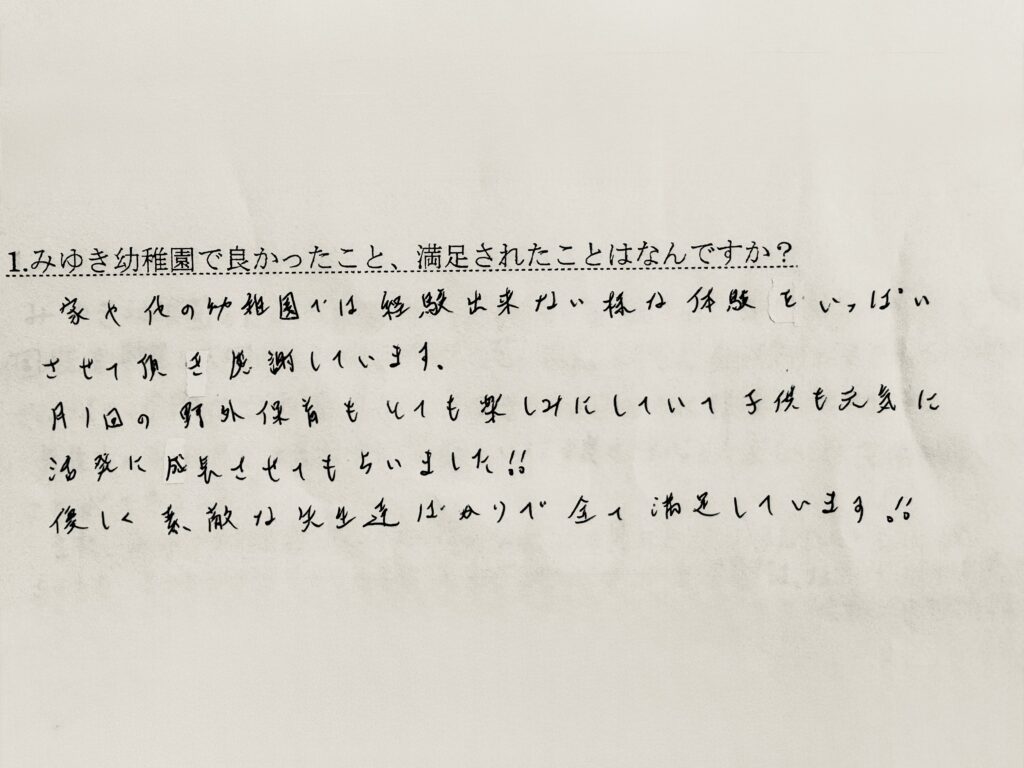 1.みゆき幼稚園で良かったこと、満足されたことはなんですか？
家や他の幼稚園では経験出来ない様な体験をいっぱい
させて頂き感謝しています。
月1回の野外保育もとても楽しみにしていて子供も元気に
活発に成長させてもらいました!!
優しく素敵な先生達ばかりで全て満足しています!!